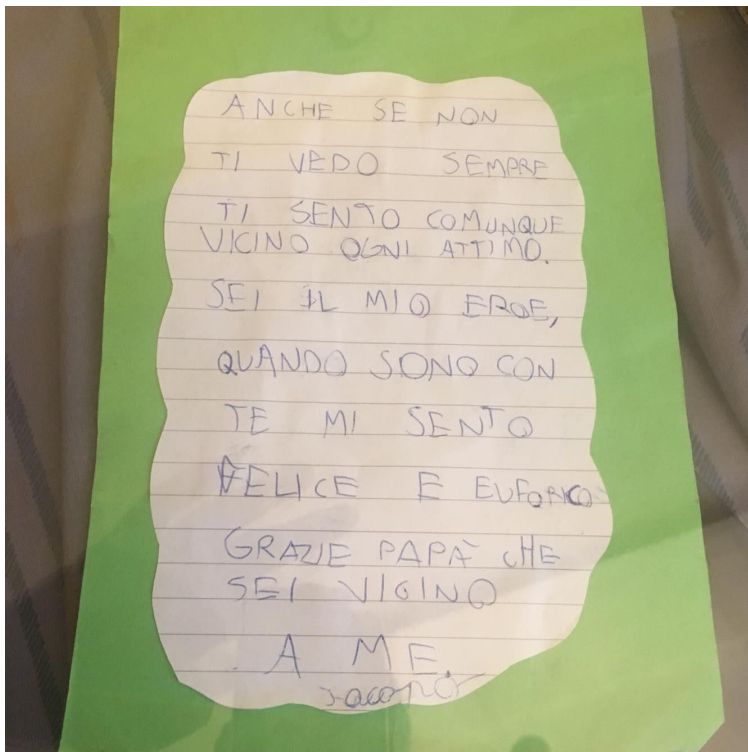 ANCHE SE NON
TI VEDO SEMPRE
TI SENTO COMUNQUE
VICINO OGNI ATTIMO.
SEI IL MIO EROE,
QUANDO SONO CON
TE MI SENTO
FELICE E EUFORICO
GRAZIE PAPÀ CHE
SEI VICINO
A ME.
Jacopo